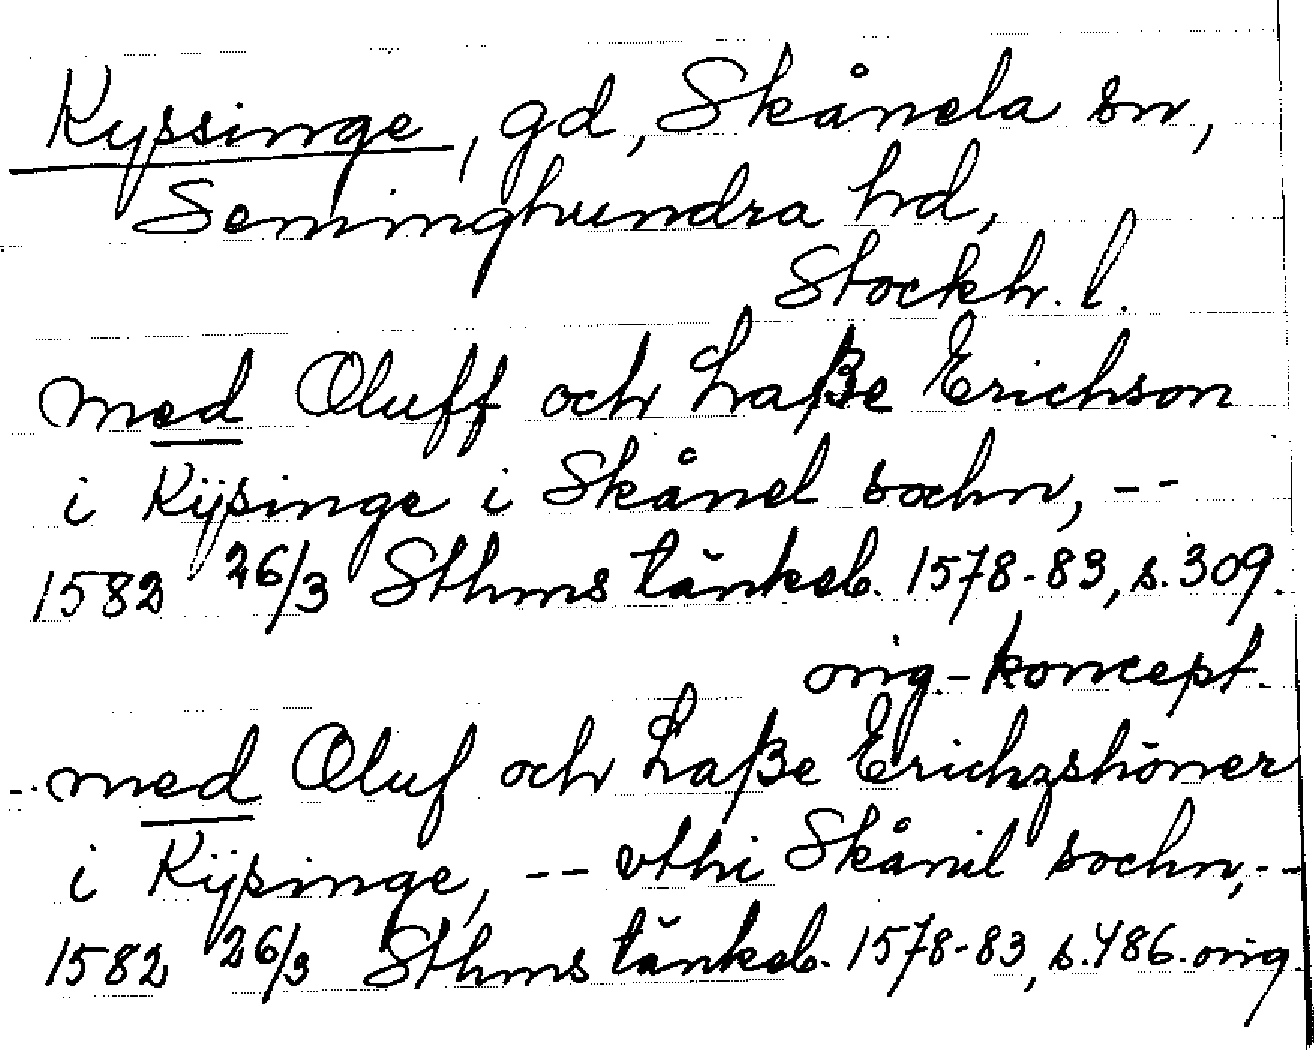 Kyssinge, gd, Skånela sn,
Seminghundra hd,
Stockh. l.
med Oluff och Laße Erichson
i Kijsinge i Skånel sochn, --
1582 26/3 Sthms tänkeb. 1578-83, s. 309.
orig-koncept.
-- med Oluf och Laße Erichzshöner
i Kijsinge, -- vthi Skånil sochn, --
1582 26/3 Sthms tänkeb. 1578-83, s. 486. orig